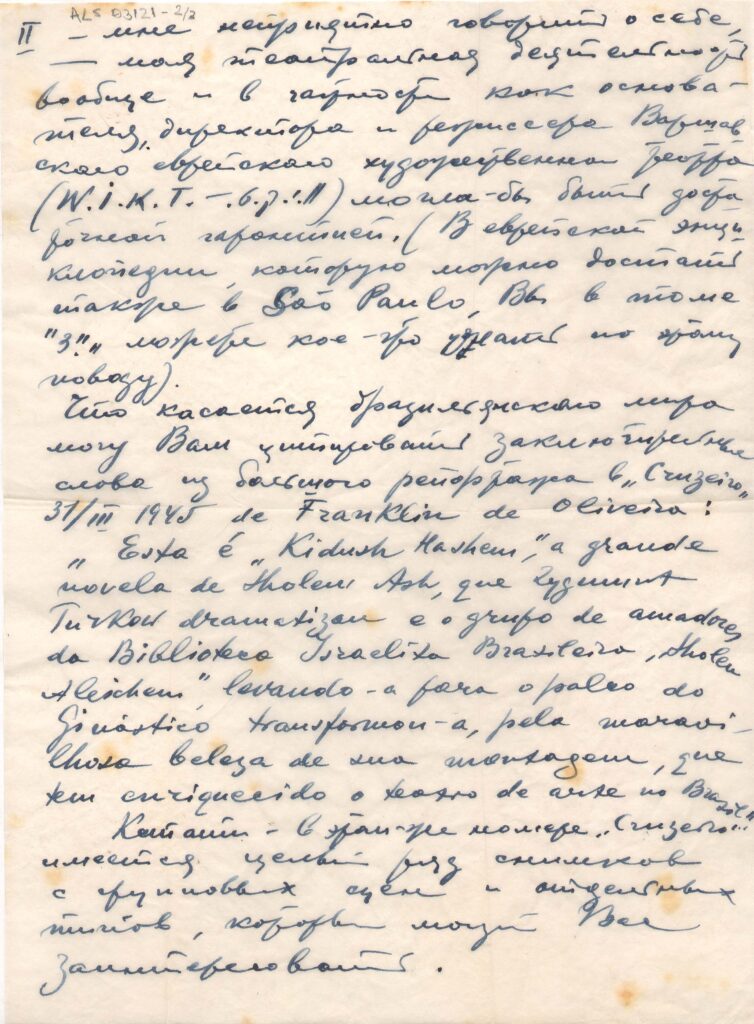 ALS 03121-2/3
II — мне неприятно говорить о себе,
— моя театральная деятельность
вообще и в частности как основа-
теля, директора и режиссера Варшав
ского еврейского художественнаго театра
(W.i.K.T. –) могла-бы быть доста
точной гарантией. (В еврейской энци
клопедии, которую можно достать
также в São Paulo, Вы в томе
"3" можете кое-что узнать по этому
поводу).
Что касается бразильянского мира
могу Вам цитировать заключительные
слова из большого репортажа в „Cruzeiro"
31/III 1945 de Franklin de Oliveira:
„Esta é „Kidush Hashem", a grande
novela de Sholem Ash, que Zygmunt
Turkow dramatizou e o grupo de amadores
da Biblioteca Israelita Brasileira „Sholem
Aleichem", levando-a para o palco do
Ginástico transformou-a, pela maravi-
lhosa beleza de sua montagem, que
tem enriquecido o teatro de arte no Brasil".
Кстати – в этом-же номере „Cruzeiro"
имеется целый ряд снимков
с групповых сцен и отдельных
типов, которые могут Вас
заинтересовать.